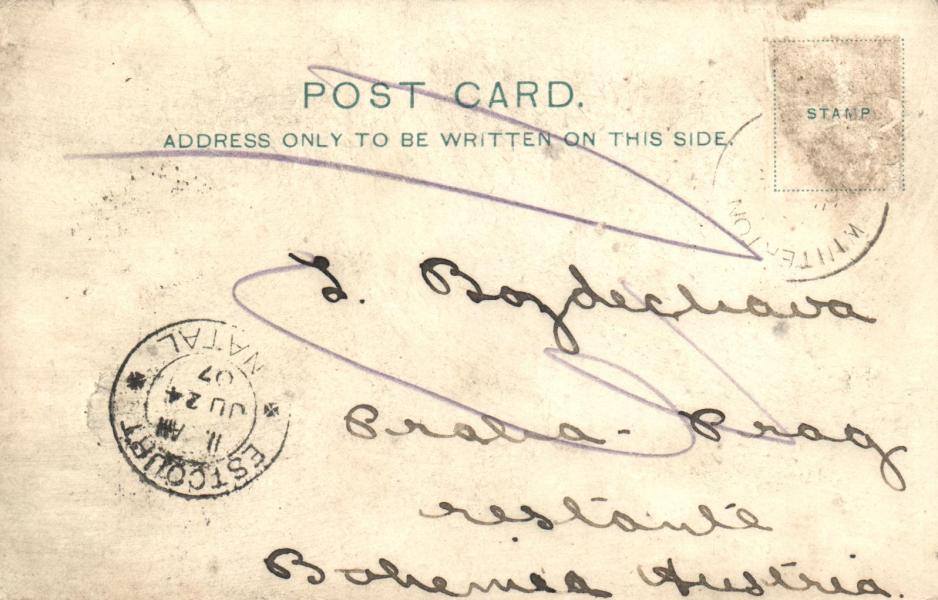 POST CARD.
ADDRESS ONLY TO BE WRITTEN ON THIS SIDE.
STAMP
WINTERTON
S. Bozdechava
Praha - Prag
restante
Bohemea Austria.
ESTCOURT
11. AM
JU 24
07
NATAL